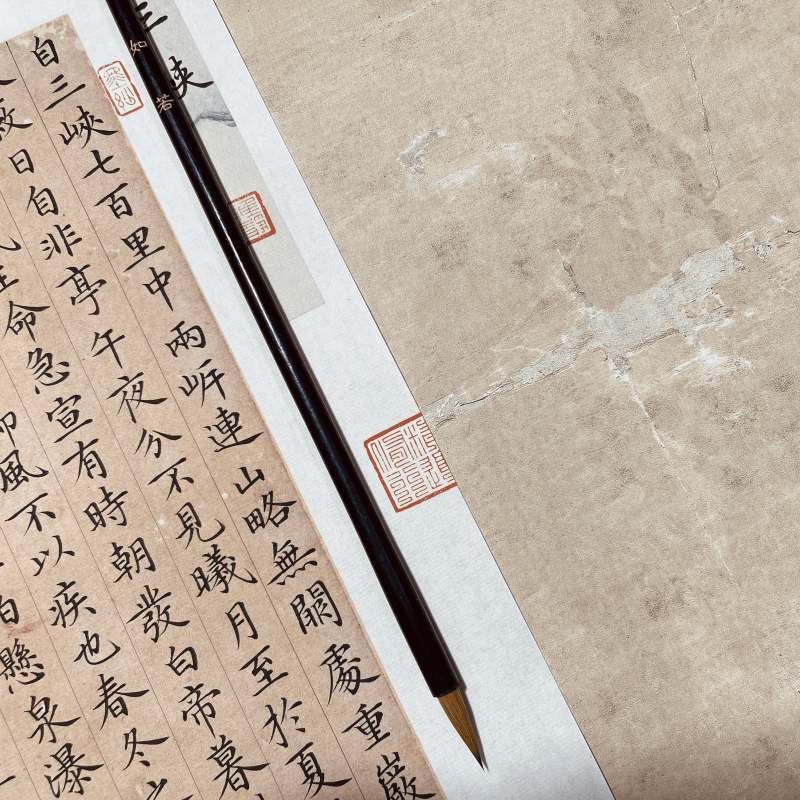 三峽
如若
自三峽七百里中兩岸連山略無闕處重巖
蔽日自非亭午夜分不見曦月至於夏
王命急宣有時朝發白帝暮
御風不以疾也春冬
柏懸泉瀑